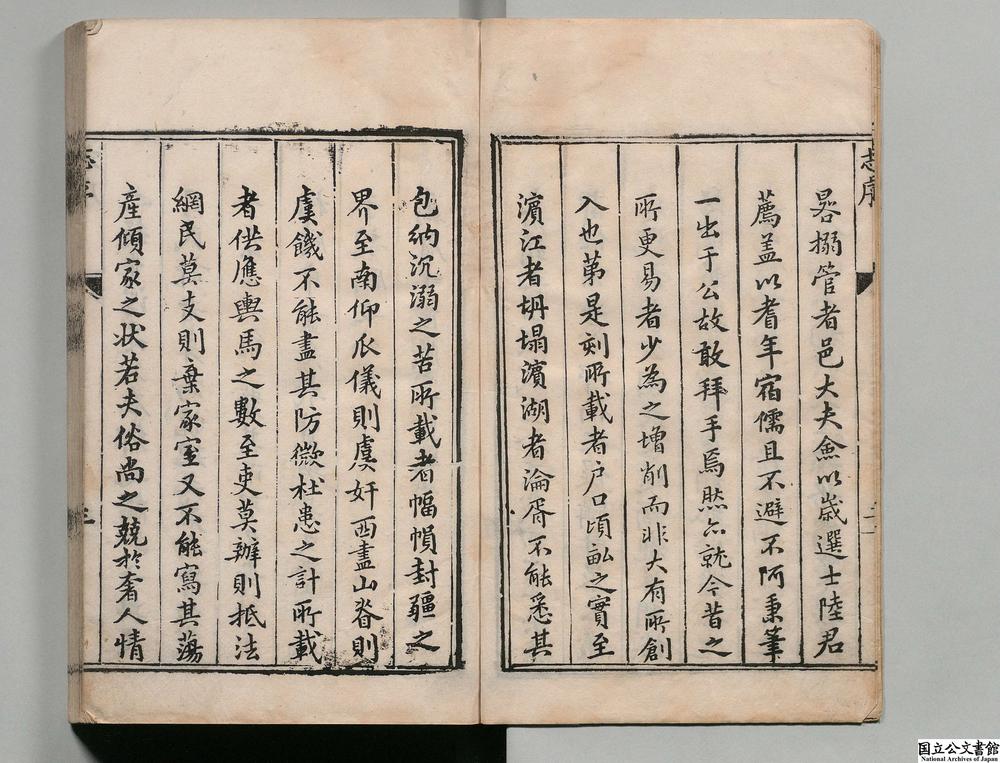 晷搦管者邑大夫僉以歲選士陸君
薦盖以耆年宿儒且不避不阿秉筆
一出于公故敢拜手焉然亦就今昔之
所更易者少為之增削而非大有所創
入也第是刻所載者戶口頃畝之實至
濵江者坍塌濵湖者淪胥不能悉其
包納沉溺之苦所載者幅幀封疆之
界至南仰瓜儀則虞奸西盡山沓則
虞饑不能盡其防微杜患之計所載
者供應輿馬之數至吏莫辦則抵法
網民莫支則棄家室又不能寫其蕩
產傾家之状若夫俗尚之競於奢人情
志序
志序
三
国立公文書館
National Archives of Japan